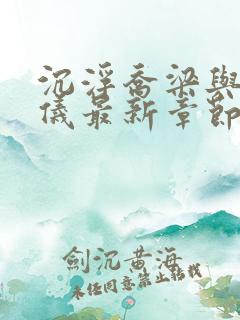 沉浮喬梁與
儀最新章節
劍沉黃海
未经同意禁止转载